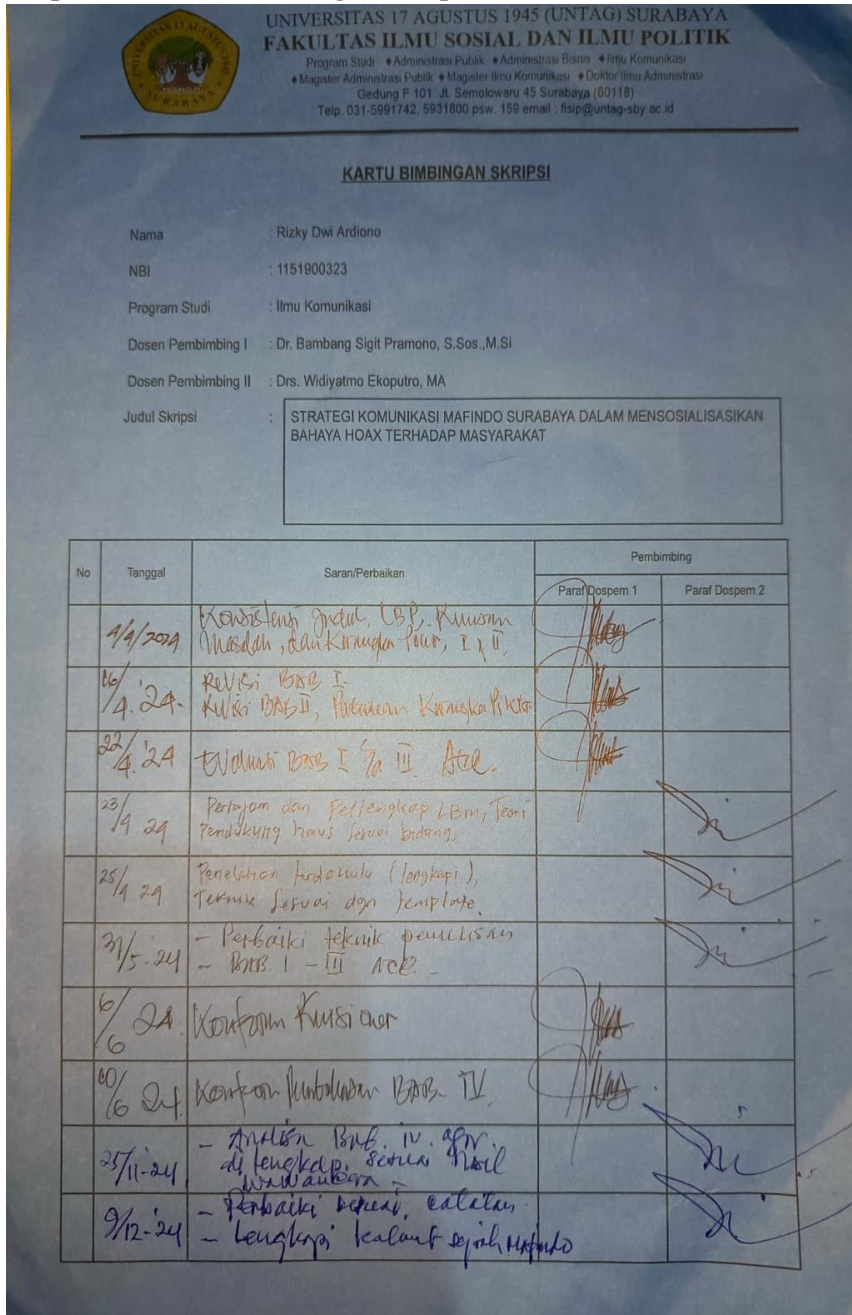 UNIVERSITAS 17 AGUSTUS 1945 (UNTAG) SURABAYA
FAKULTAS ILMU SOSIAL DAN ILMU POLITIK
Program Studi ♦Administrasi Publik ♦Administrasi Bisnis ♦Ilmu Komunikasi
♦Magister Administrasi Publik ♦Magister Ilmu Komunikasi ♦Doktor Ilmu Administrasi
Gedung F 101 Jl. Semolowaru 45 Surabaya (60118)
Telp. 031-5991742, 5931800 psw. 159 email : fisip@untag-sby.ac.id
KARTU BIMBINGAN SKRIPSI
Nama : Rizky Dwi Ardiono
NBI : 1151900323
Program Studi : Ilmu Komunikasi
Dosen Pembimbing I : Dr. Bambang Sigit Pramono, S.Sos.,M.Si
Dosen Pembimbing II : Drs. Widiyatmo Ekoputro, MA
Judul Skripsi : STRATEGI KOMUNIKASI MAFINDO SURABAYA DALAM MENSOSIALISASIKAN
BAHAYA HOAX TERHADAP MASYARAKAT
No Tanggal Saran/Perbaikan Pembimbing
Paraf Dospem 1 Paraf Dospem 2
Konsistensi Judul, LBP, Rumusan
4/4/2024 Masalah, dan Kerangka Pikir, I
16/4.'24. Revisi BAB I.
Revisi BAB II, Kerangka Pikir
22/4.'24 Evaluasi BAB I III. Acc.
23/4 24 Pertajam dan Perlengkap LBM, Teori
Pendukung harus sesuai bidang,
25/4 24 Penelitian terdahulu (lengkapi),
Teknik Sesuai dgn template.
31/5-24 - Perbaiki teknik penelitian
- BAB. I - III ACC -
6/6 24. Kuesioner
10/6 24. BAB. IV.
- Analisa BAB. IV. agar
25/11-24 dilengkapi sesuai hasil
wawancara -
- Perbaiki sesuai catatan
9/12-24 - Lengkapi sejarah Mafindo